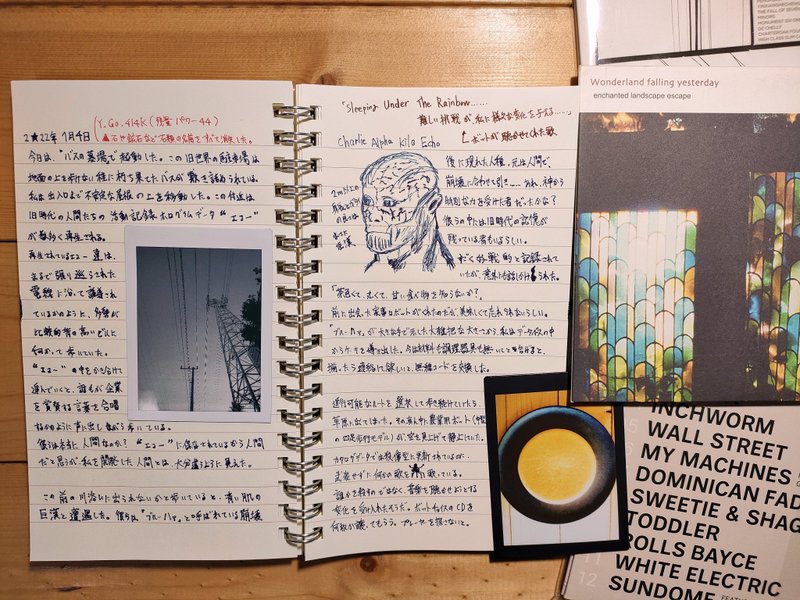 Y. Go. 414K (残量 パワー 44)
2★22年 1月4日
▲石や鉱石など石類の名前をすべて消除した。
今日は、"バスの墓場"で起動した。この旧世界の駐車場は
地面の上を歩けない程に朽ち果てたバスが敷き詰められている
私は出入口まで不安定な屋根の上を移動した。この付近は
旧時代の人間たちの活動記録ホログラムデータ "エコー"
が数多く再生される。
再生されているエコー達は、
まるで張り巡らされた
電線に沿って誘導され
ているかのように、多勢が
比較的背の高いビルに
向かって歩いていた。
"エコー"の中をかき分けて
進んでいくと、誰もが企業
を賞賛する言葉を合唱
するかのように声に出し
ながら歩いている。
彼らは本当に人間なのか? "エコー"に保存されているから人間
だと思うが私を開発した人間とは、大分違うように見えた。
この前の川沿いに出られないかと歩いていると、青い肌の
巨漢と遭遇した。彼らは、「ブルーハァ」と呼ばれている崩壊
「Sleeping Under The Rainbow......
難しい挑戦が私に様々な変化を与える......」
ロボットが聴かせてくれた歌
Charlie Alpha Kilo Echo
2m以上の
青い肌の
巨漢
後に現れた人種。元は人間で、
崩壊に合わせて引き.....
特別な力を受けた者だったかな?
彼らの中には旧時代の記憶が
残っている者もいるらしい。
好戦的と記録されて
いたが、意外にも話しかけられた。
「茶色くて、丸くて、甘い食べ物を知らないか?」
前に出会った家事ロボットがくれたのだが、美味しくて忘れられないらしい。
「ブルーハァ」が大きな手で示した大雑把な大きさから、私はデータ仮の中
からケーキを導き出した。今は材料も調理器具も無いことを告げると、
揃ったら連絡して欲しいと、無線コードを交換した。
通行可能なルートを選択して歩き続けていたら、
草原に出てしまった。その真ん中、農業用ロボット(中型
の四足歩行モデル)が空を見上げて静止していた。
カタログデータでは殺傷型に更新されているが、
武装せずに何かの歌を歌っている。
誰かを殺すのではなく、音楽を聴かせようとする
変化を受け入れたそうだ。ロボットチョイスのCDを
何枚か譲ってもらう。プレーヤーを探さないと。
Wonderland falling yesterday
enchanted landscape escape
THE FALL OF SEVEN
MINORS
DE CHELLY
INCHWORM
WALL STREET
MY MACHINES
DOMINICAN FAD
SWEETIE & SHAG
TODDLER
ROLLS BAYCE
11 WHITE ELECTRIC
12 SUNDOME